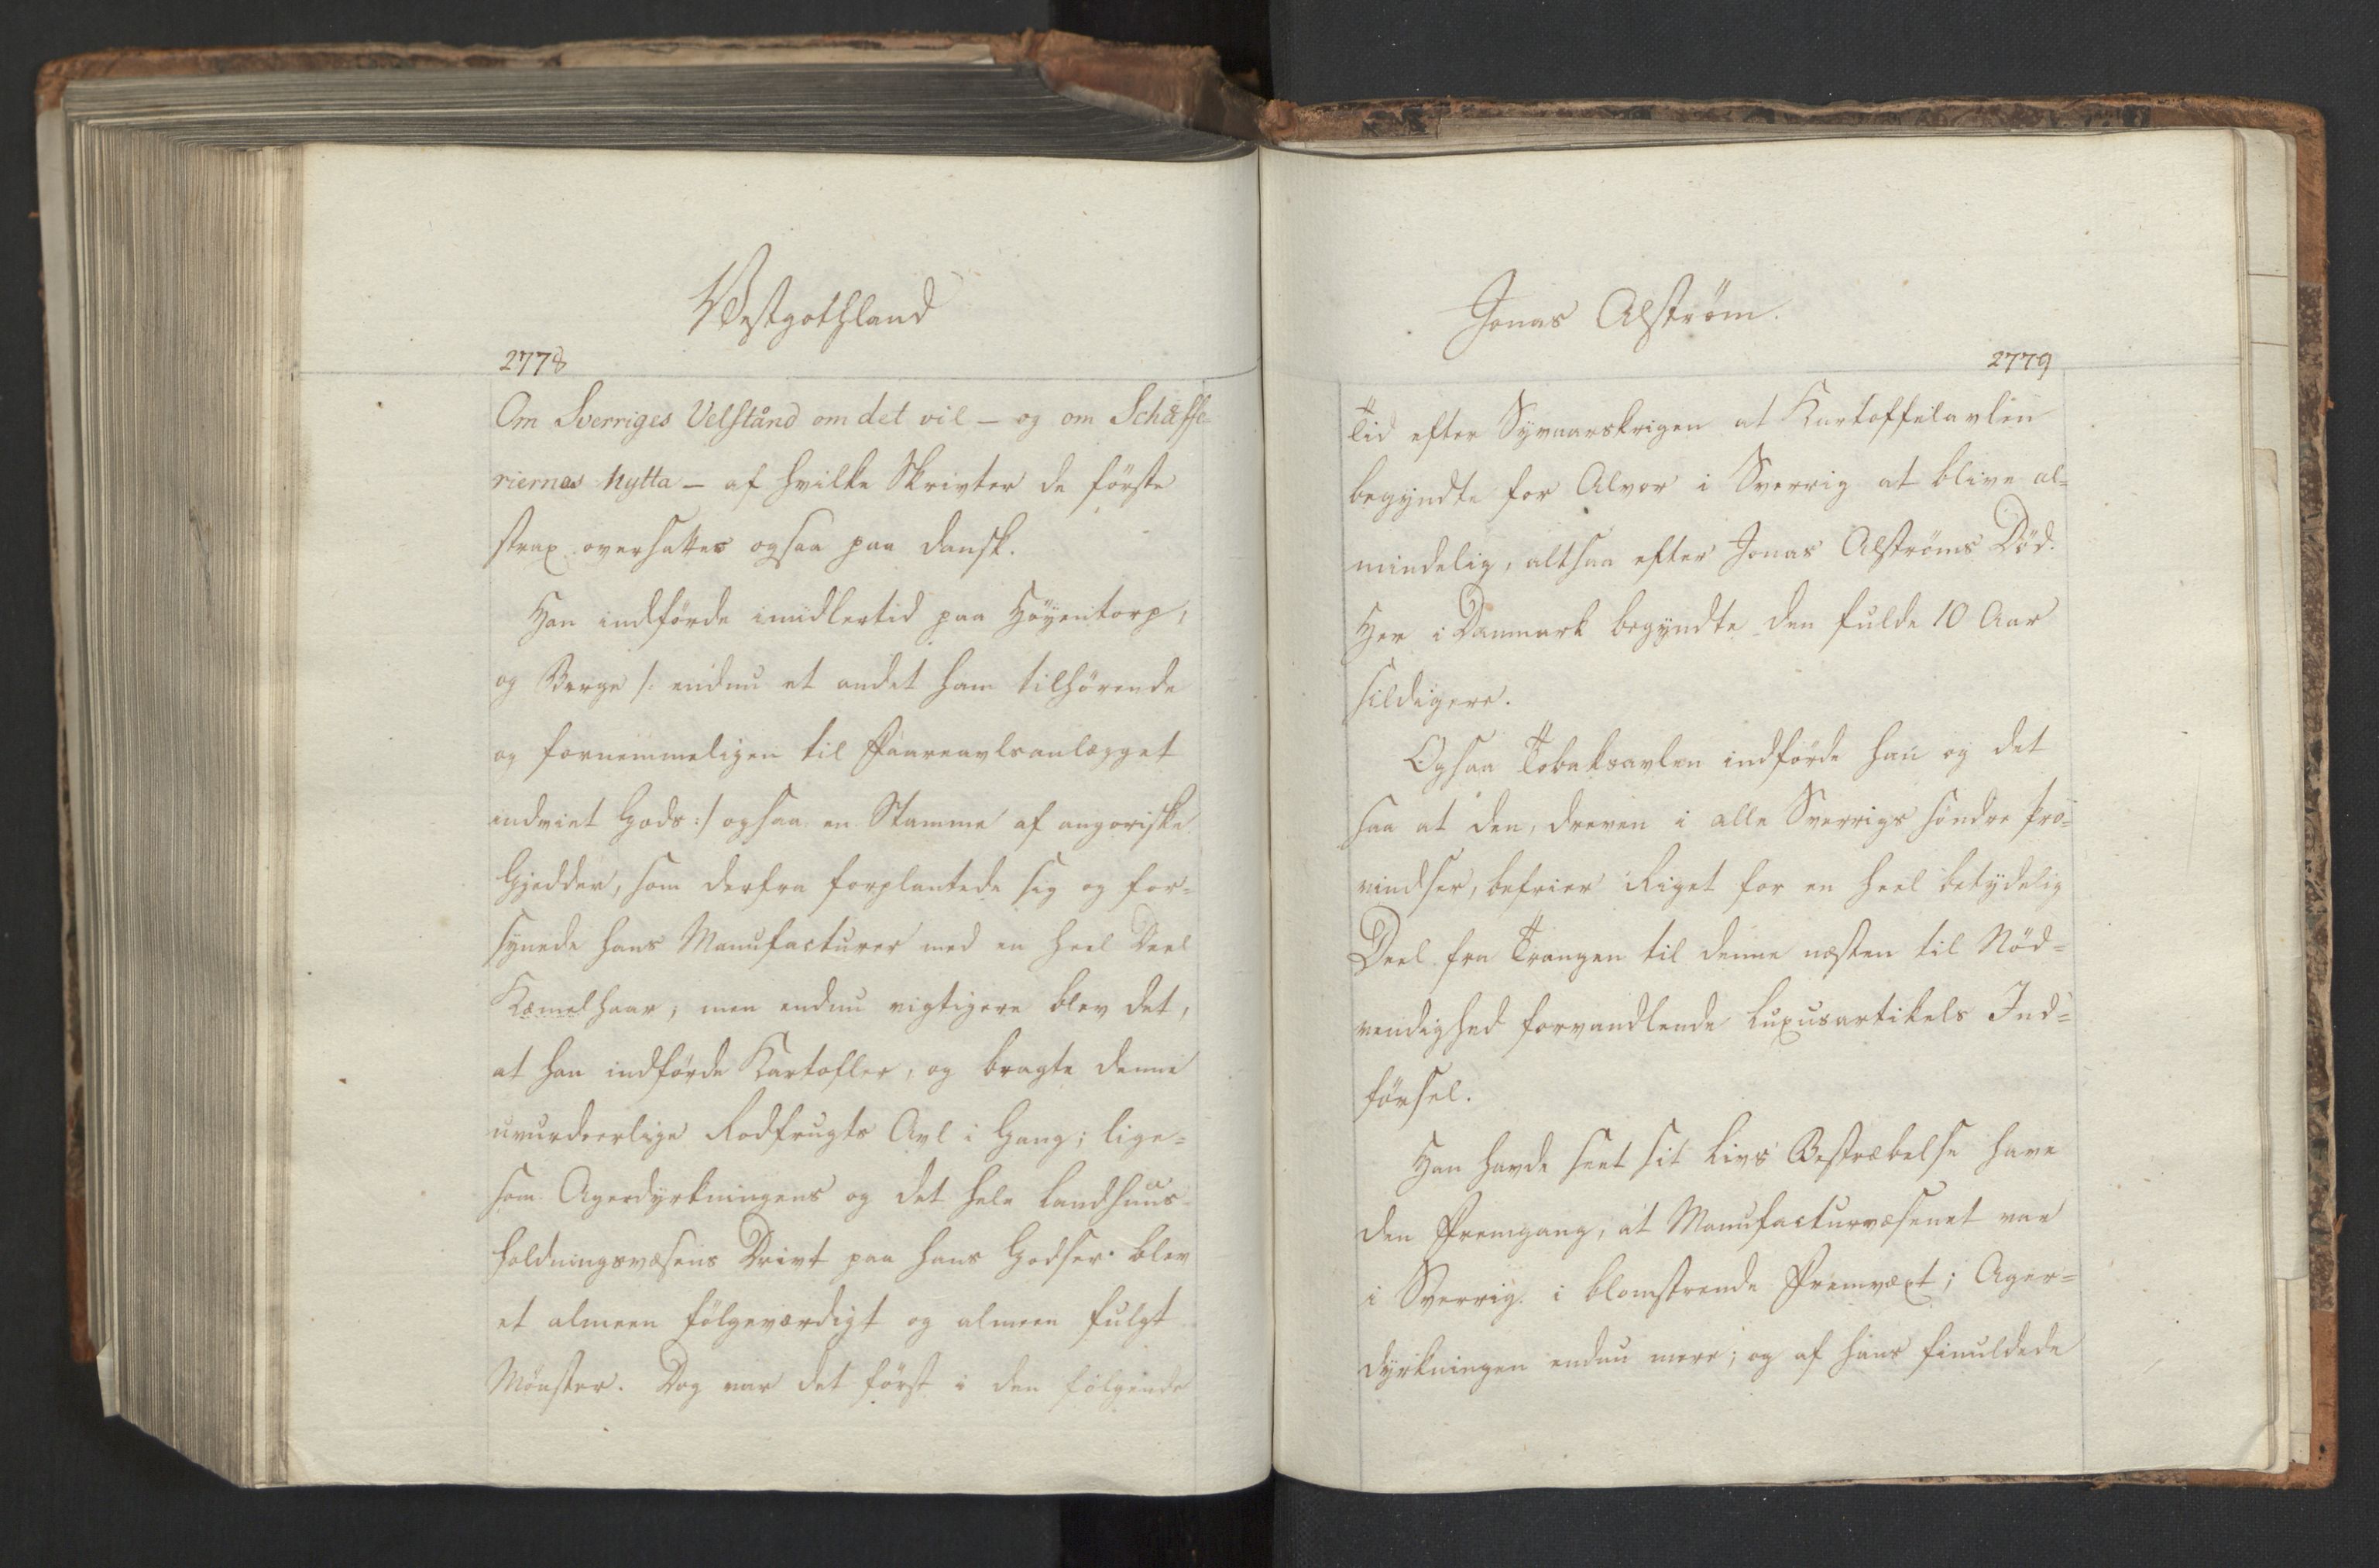 Westgothland
2778
Om Sverriges Velstånd om det vil – og om Schäffe-
riernas Nytta – af hvilke Skrivter de förste
strax oversattes ogsaa paa dansk.
Han indförde imidlertid paa Höyentorp,
og Berge /: endnu et andet ham tilhörende
og fornemmeligen til Faareavlsanlægget
indviet Gods :/ ogsaa en Stamme af angoriske
Gjedder, som derfra forplantede sig og for=
synede hans Manufacturer med en heel Deel
Kæmelhaar; men endnu vigtigere blev det,
at han indförde Kartofler, og bragte denne
uvurdeerlige Rodfrugts Avl i Gang; lige=
som Agerdyrkningens og det hele Landhuus-
holdningsvæsens Drivt paa hans Godser blev
et almeen fölgeværdigt og almeen fulgt
Mönster. Dog var det först i den fölgende
Jonas Alström.
2779
Tid efter Syvaarskrigen at Kartoffelavlen
begyndte for Alvor i Sverrig at blive al=
mindelig, altsaa efter Jonas Alströms Död.
Her i Danmark begyndte den fulde 10 Aar
sildigere.
Ogsaa Tobaksavlen indförde han og det
saa at den, dreven i alle Sverrigs söndre Pro=
vindser, befrier Riget for en heel betydelig
Deel fra Trangen til denne næsten til Nöd=
vendighed forvandlende Luxusartikels Ind=
försel.
Han havde seet sit Livs Bestræbelse have
den Fremgang, at Manufacturvæsenet var
i Sverrig i blomstrende Fremvæxt; Ager=
dyrkningen endnu mere; og af hans finuldede